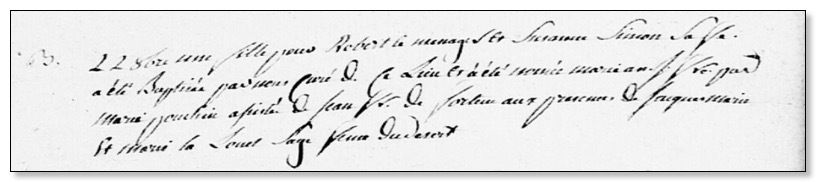 B. 22 8bre une fille pour Robert le menager Et Suzanne Simon Sa fe.
a été Baptisée par nous Curé de Ce Lieu Et a été nomée marianne par
Marie assistée de Jean de aux presences de Jacques marin
Et marie la Louet Sage feme du desert